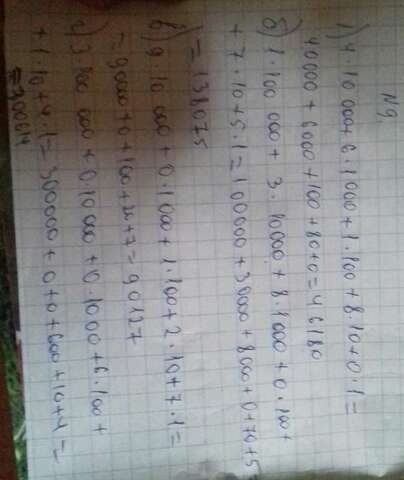 N9.
1) 4·10 000+6·1000+1·100+8·10+0·1=
40000+6000+100+80+0=46180
б) 1·100 000+3·10000+8·1000+0·100+
+7·10+5·1=100000+30000+8000+0+70+5
=138075
в) 9·10 000+0·1000+1·100+2·10+7·1=
=90000+0+100+20+7=90127
г) 3·100 000+0·10000+0·1000+6·100+
+1·10+4·1=300000+0+0+600+10+4=
=300614